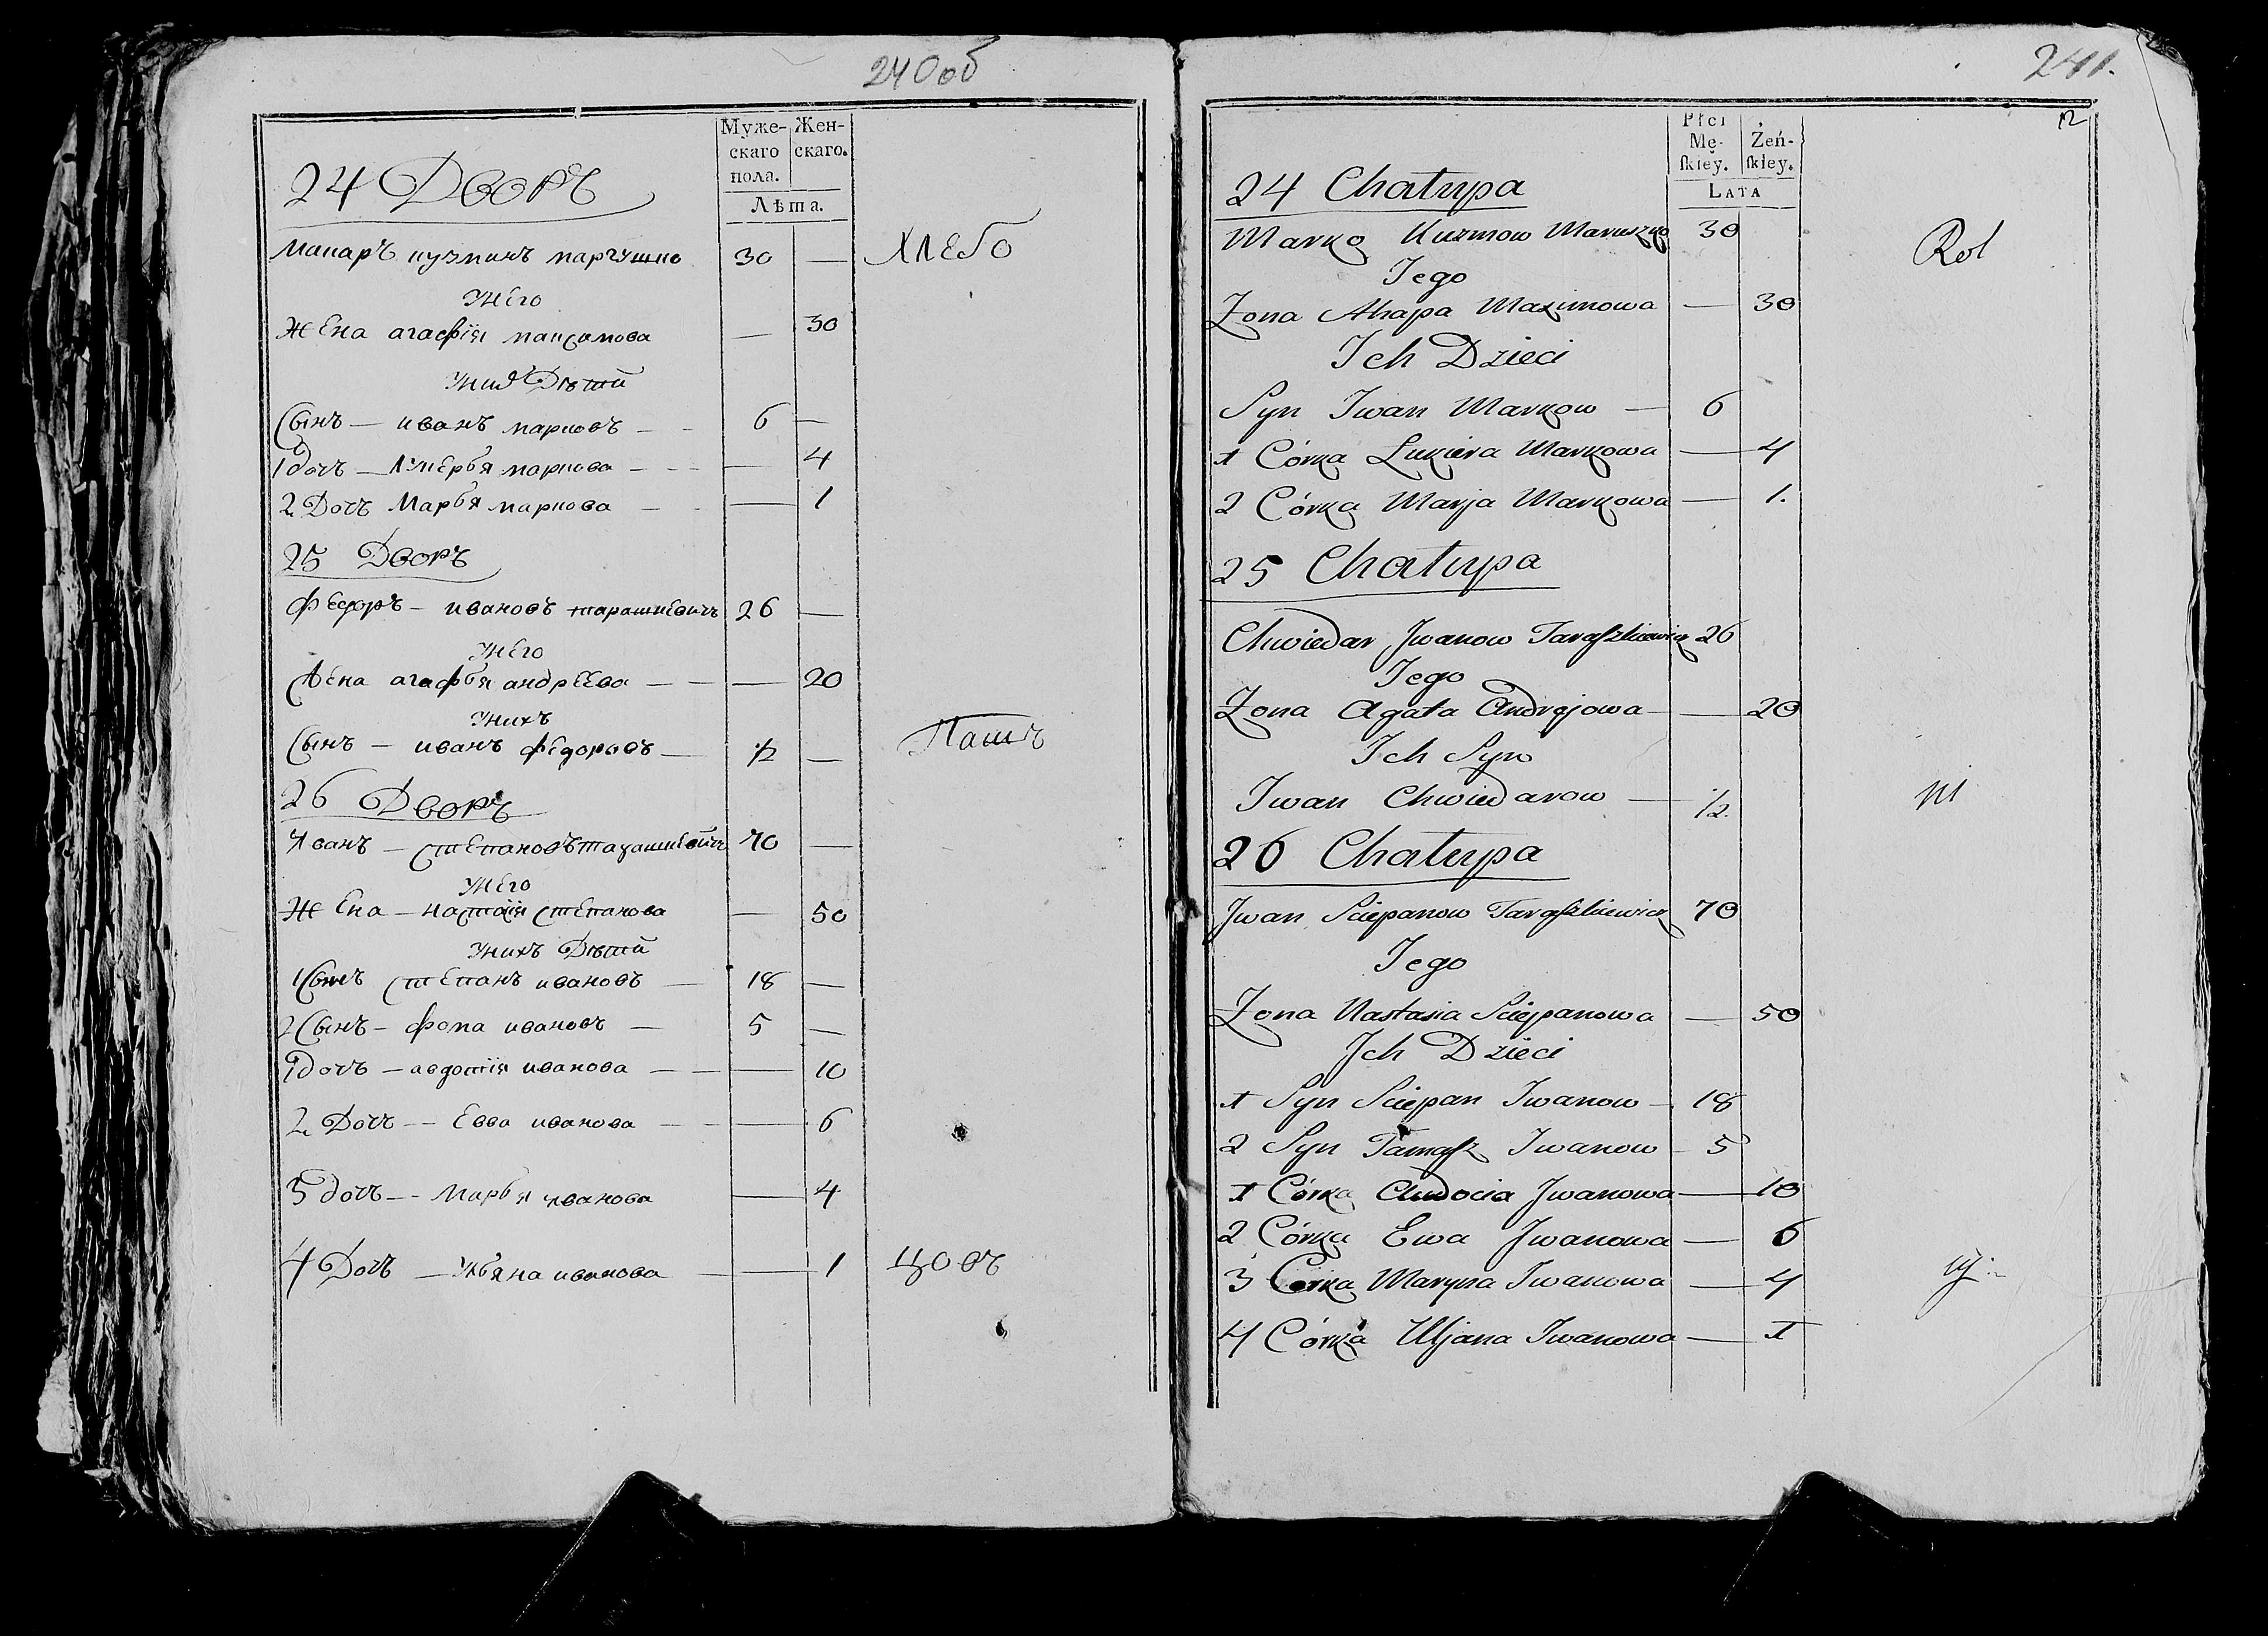 240об
Муже- Жен-
скаго скаго.
пола.
Лѣта.
24 Дворъ
Макаръ кузминъ маркушко 30 — ХЛЕБО
унего
Жена агафiя максимова — 30
унихъ Дѣтей
Сынъ — иванъ марковъ — 6 —
1 дочь — лукерья маркова — — 4
2 Дочь Марья маркова — — 1
25 Дворъ
Федоръ — ивановъ тарашкевичъ 26 —
унего
Жена агафья андреева — — 20
унихъ
Сынъ — иванъ федоровъ — ½ — Пашъ
26 Дворъ
Иванъ — степановъ тарашкевичъ 70 —
унего
Жена — настасiя степанова — 50
унихъ Дѣтей
1 Сынъ степанъ ивановъ — 18 —
2 Сынъ — фома ивановъ — 5 —
1 дочь — авдотiя иванова — — 10
2 Дочь — Евва иванова — — 6
3 дочь — Марья иванова — 4
4 Дочь — Ульяна иванова — 1 ЦОВЪ
241.
12
Płci
Mę- Żeń-
ſkiey. ſkiey.
LATA
24 Chałupa
Marko Kuzmow Maruszko 30 Rol
Jego
Zona Ahapa Maximowa — 30
Ich Dzieci
Syn Iwan Markow — 6
1 Córka Lukiera Markowa — 4
2 Córka Marja Markowa — 1.
25 Chałupa
Chwiedar Jwanow Taraſzkiewicz 26
Jego
Zona Agata Andrejowa — 20
Ich Syn
Iwan Chwiedarow — ½ ni
26 Chałupa
Jwan Sciepanow Taraſzkiewicz 70
Jego
Zona Nastasia Sciepanowa — 50
Jch Dzieci
1 Syn Sciepan Iwanow — 18
2 Syn Tamaſz Iwanow — 5
1 Córka Audocia Jwanowa — 10
2 Córka Ewa Jwanowa — 6
3 Córka Maryna Iwanowa — 4
4 Córka Uljana Iwanowa — 1